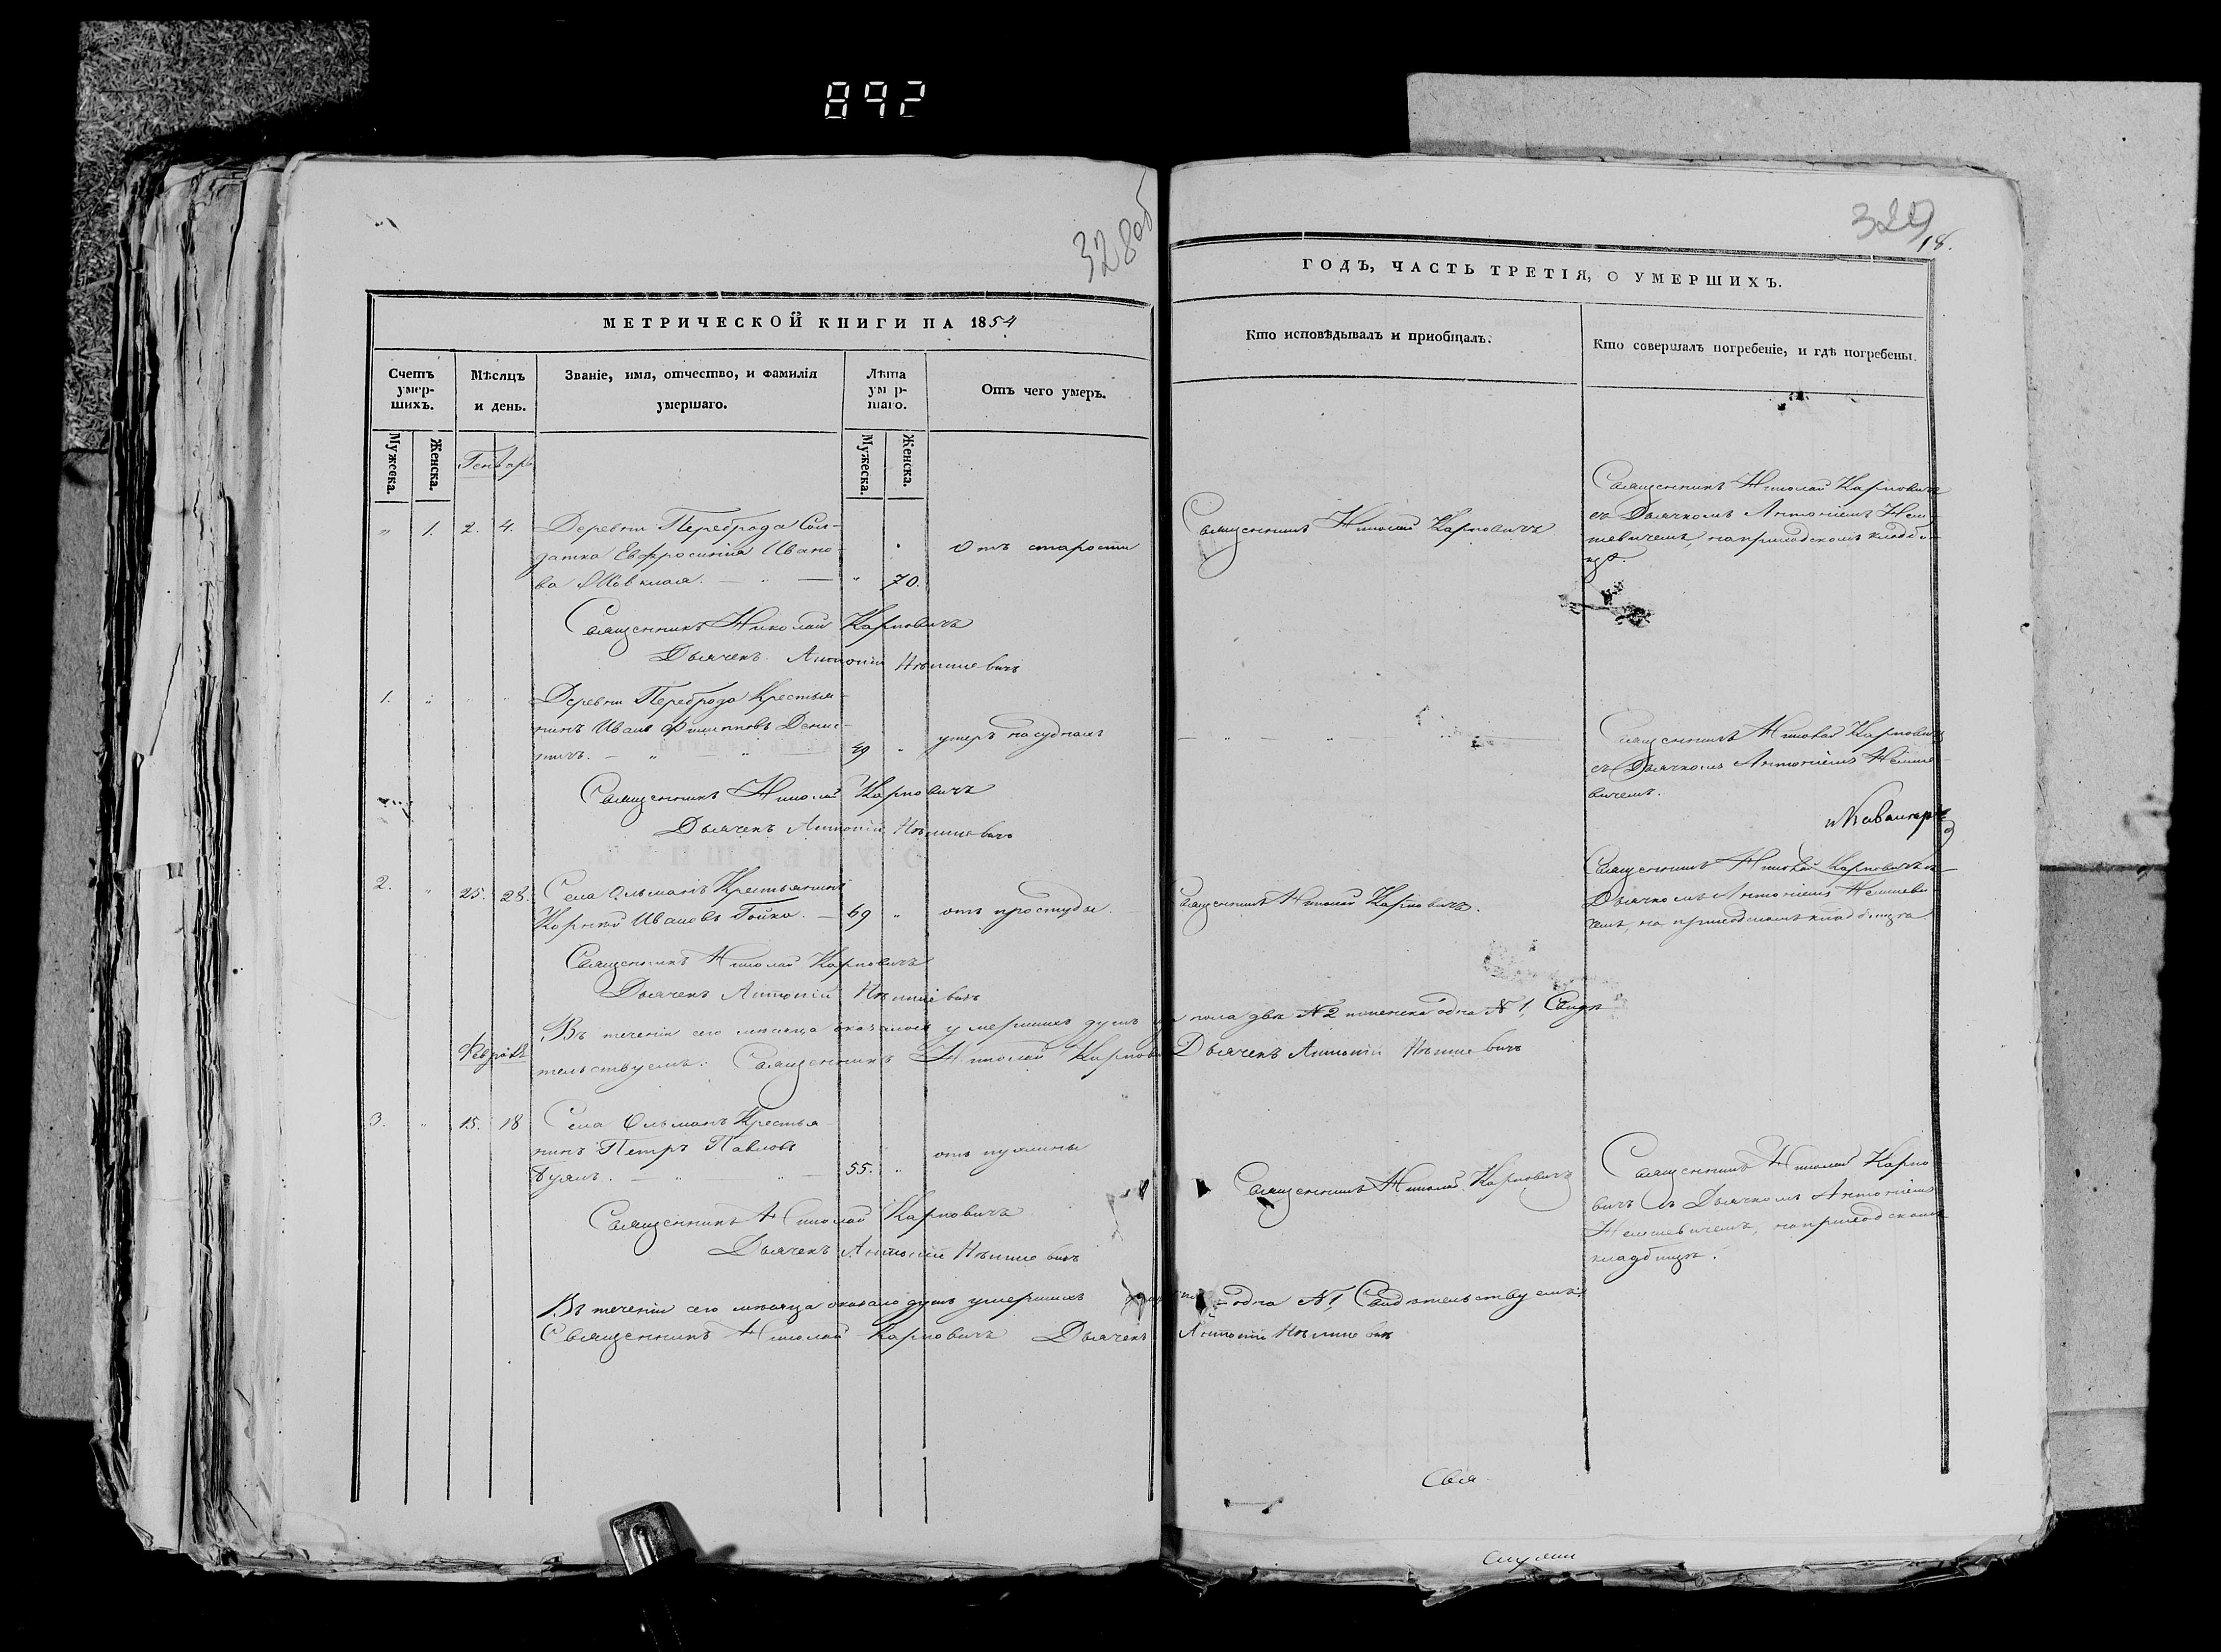 892
328об
329
18.
МЕТРИЧЕСКОЙ КНИГИ НА 1854
ГОДЪ, ЧАСТЬ ТРЕТІЯ, О УМЕРШИХЪ.
Счетъ умер-шихъ.
Мѣсяцъ и день.
Званіе, имя, отчество, и фамилія
умершаго.
Лѣта ум р-шаго.
Отъ чего умеръ.
Кто исповѣдывалъ и приобщалъ.
Кто совершалъ погребеніе, и гдѣ погребены.
Мужеска.
Женска.
Мужеска.
Женска.
Генварь
" 1. 2. 4. Деревни Переброда Сол-
датка Евфросинія Ивано-
ва " 70.
отъ старости
Священникъ Николай Карповичъ
Священникъ Николай Карповичъ
съ Дьячкомъ Антоніемъ Нем-
шевичемъ, на приходскомъ кладби-
щѣ.
Священникъ Николай Карповичъ
Дьячекъ Антоній Нѣмшевичъ
1. " Деревни Переброда Крестья-
нинъ Иванъ Филиповъ Дени-
49 "
умеръ
Священникъ Николай Карповичъ
съ Дьячкомъ Антоніемъ Немше-
вичемъ.
Священникъ Николай Карповичъ
Дьячекъ Антоній Нѣмшевичъ
2. " 25. 28. Села Ольманъ Крестьянинъ
Корнѣй Ивановъ Гойко. 69 "
отъ простуды
Священникъ Николай Карповичъ.
Священникъ Николай Карповичъ съ
Дьячкомъ Антоніемъ Немшеви-
чемъ, на приходскомъ кладбища
Священникъ Николай Карповичъ
Дьячекъ Антоній Нѣмшевичъ
Въ теченіи сего мѣсяца оказалось умершихъ душъ пола двѣ №2 женска одна №1, Свидѣ
тельствуемъ: Священникъ Николай Карпови Дьячекъ Антоній Нѣмшевичъ
Февраль
3. " 15. 18 Села Ольманъ Крестья-
нинъ Петръ Павловъ
55. "
отъ пухлины
Священникъ Николай Карповичъ
Священникъ Николай Карпо
вичъ съ Дьячкомъ Антоніемъ
Немшевичемъ, на приходскомъ
кладбищѣ.
Священникъ Николай Карповичъ
Дьячекъ Антоній Нѣмшевичъ
Въ теченіи сего мѣсяца оказало душъ умершихъ одна №1 Свидѣтельствуемъ:
Священникъ Николай Карповичъ Дьячекъ Антоній Нѣмшевичъ
Свя